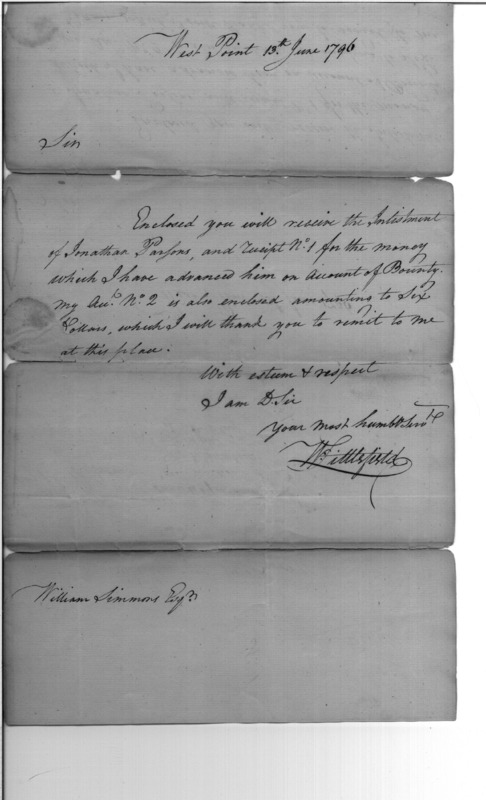 West Point 13th June 1796
Sir
Enclosed you will receive the Inlistment
of Jonathan Parsons, and receipt No. 1 for the money
which I have advanced him on Account of Bounty.
my Acct. No. 2 is also enclosed amounting to Six
Dollars, which I will thank you to remit to me
at this place.
With esteem & respect
I am D. Sir
Your most humble Servt
Wm Littlefield
William Simmons Esqr.